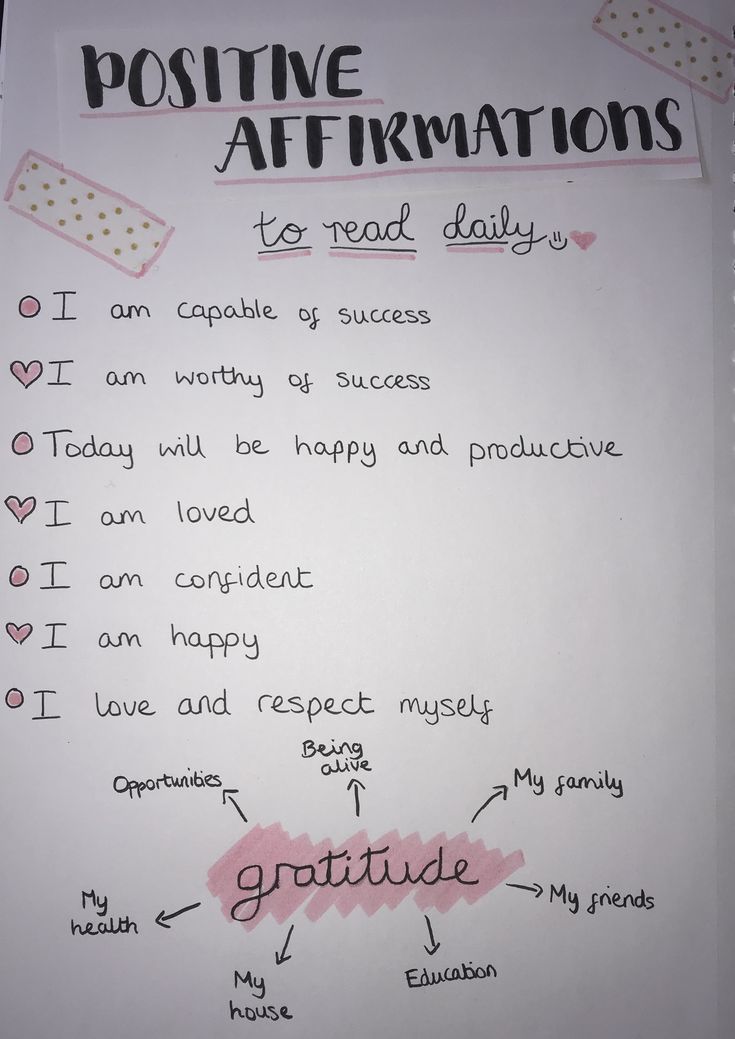 POSITIVE
AFFIRMATIONS
to read daily
I am capable of success
I am worthy of success
Today will be happy and productive
I am loved
I am confident
I am happy
I love and respect myself
Being
alive
Opportunities
My family
gratitude
My
health
My friends
My
house
Education